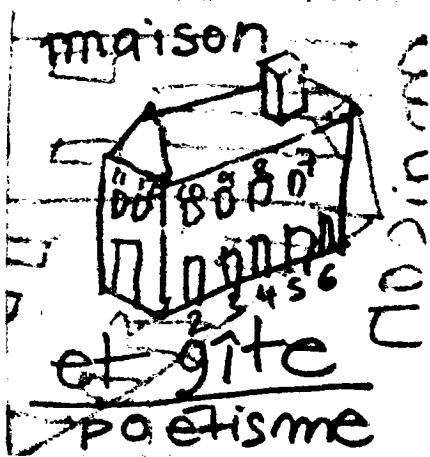 maison
11 11 10 9 8 7
2 3 4 5 6
et gîte
poétisme